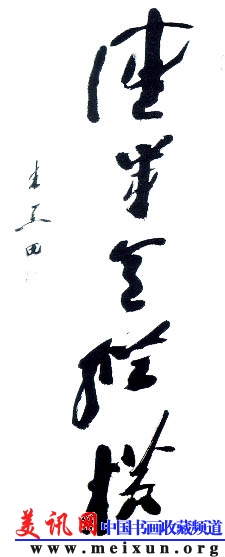 健筆意縱橫
美讯网 中国书画收藏频道
www.meixun.org